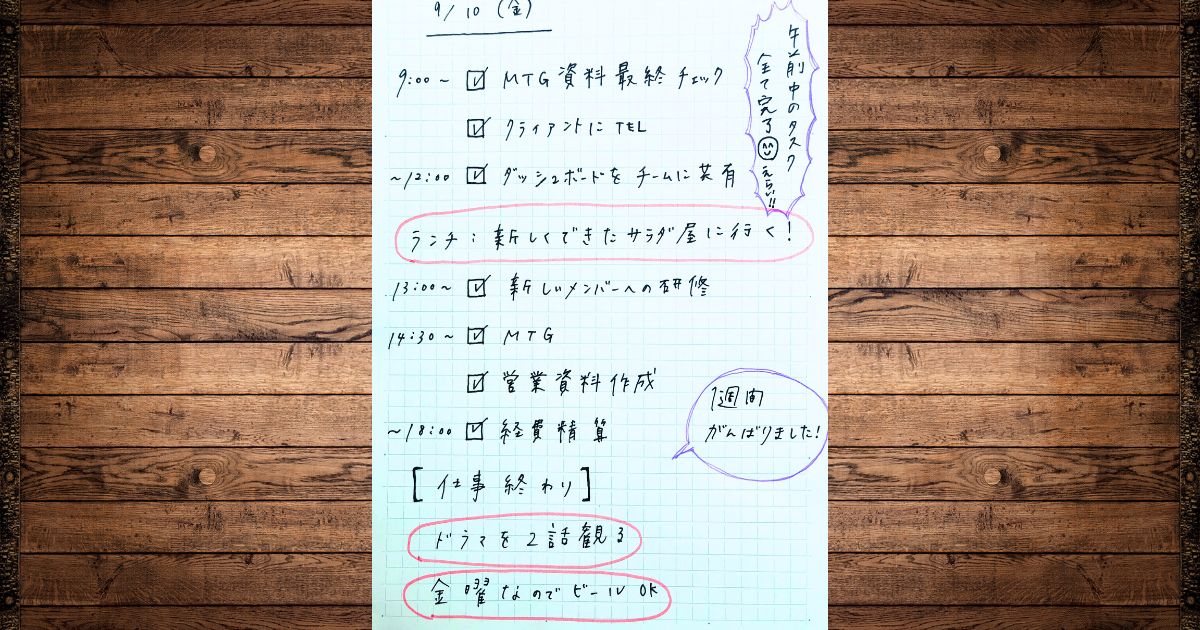 9/10(金)
9:00~ ☑ MTG資料最終チェック
☑ クライアントにTEL
~12:00 ☑ ダッシュボードをチームに共有
午前中のタスク
全て完了
えらい!!
ランチ:新しくできたサラダ屋に行く!
13:00~ ☑ 新しいメンバーへの研修
14:30~ ☑ MTG
☑ 営業資料作成
~18:00 ☑ 経費精算
1週間
がんばりました!
[仕事終わり]
ドラマを2話観る
金曜なのでビールOK